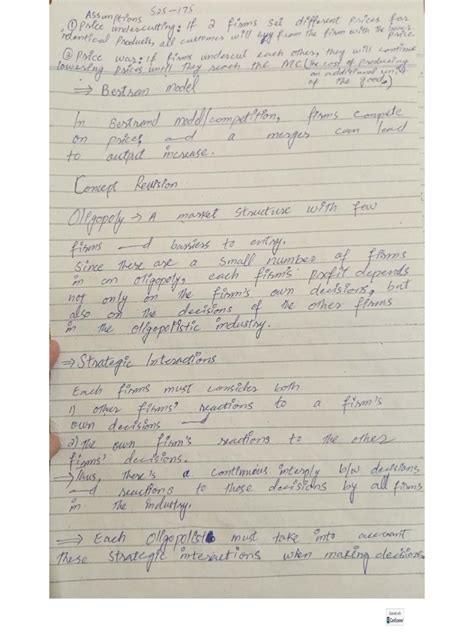 Assumptions 525-175
① Price undercutting: If 2 firms set different prices for
identical products, all customer will buy from the firm with the lower price
② Price war: if firms undercut each other, they will continue
lowering prices until they reach the MC (the cost of producing
an additional unit
of the good.)
⇒ Bertran model
In Bertrand model/competition, firms compete
on prices and a merger can lead
to output increase.
Concept Revision
Oligopoly → A market structure with few
firms and barriers to entry.
Since these are a small number of firms
in an oligopoly, each firm's profit depends
not only on the firm's own decisions, but
also on the decisions of the other firms
in the oligopolistic industry.
⇒ Strategic Interactions
Each firms must consider both
1) other firms' reactions to a firm's
own decisions and
2) The own firm's reactions to the other
firms' decisions.
⇒ Thus, there's a continuous interply b/w decisions
and reactions to those decisions by all firms
in the industry.
⇒ Each Oligopolist must take into account
these strategic interactions when making decisions.